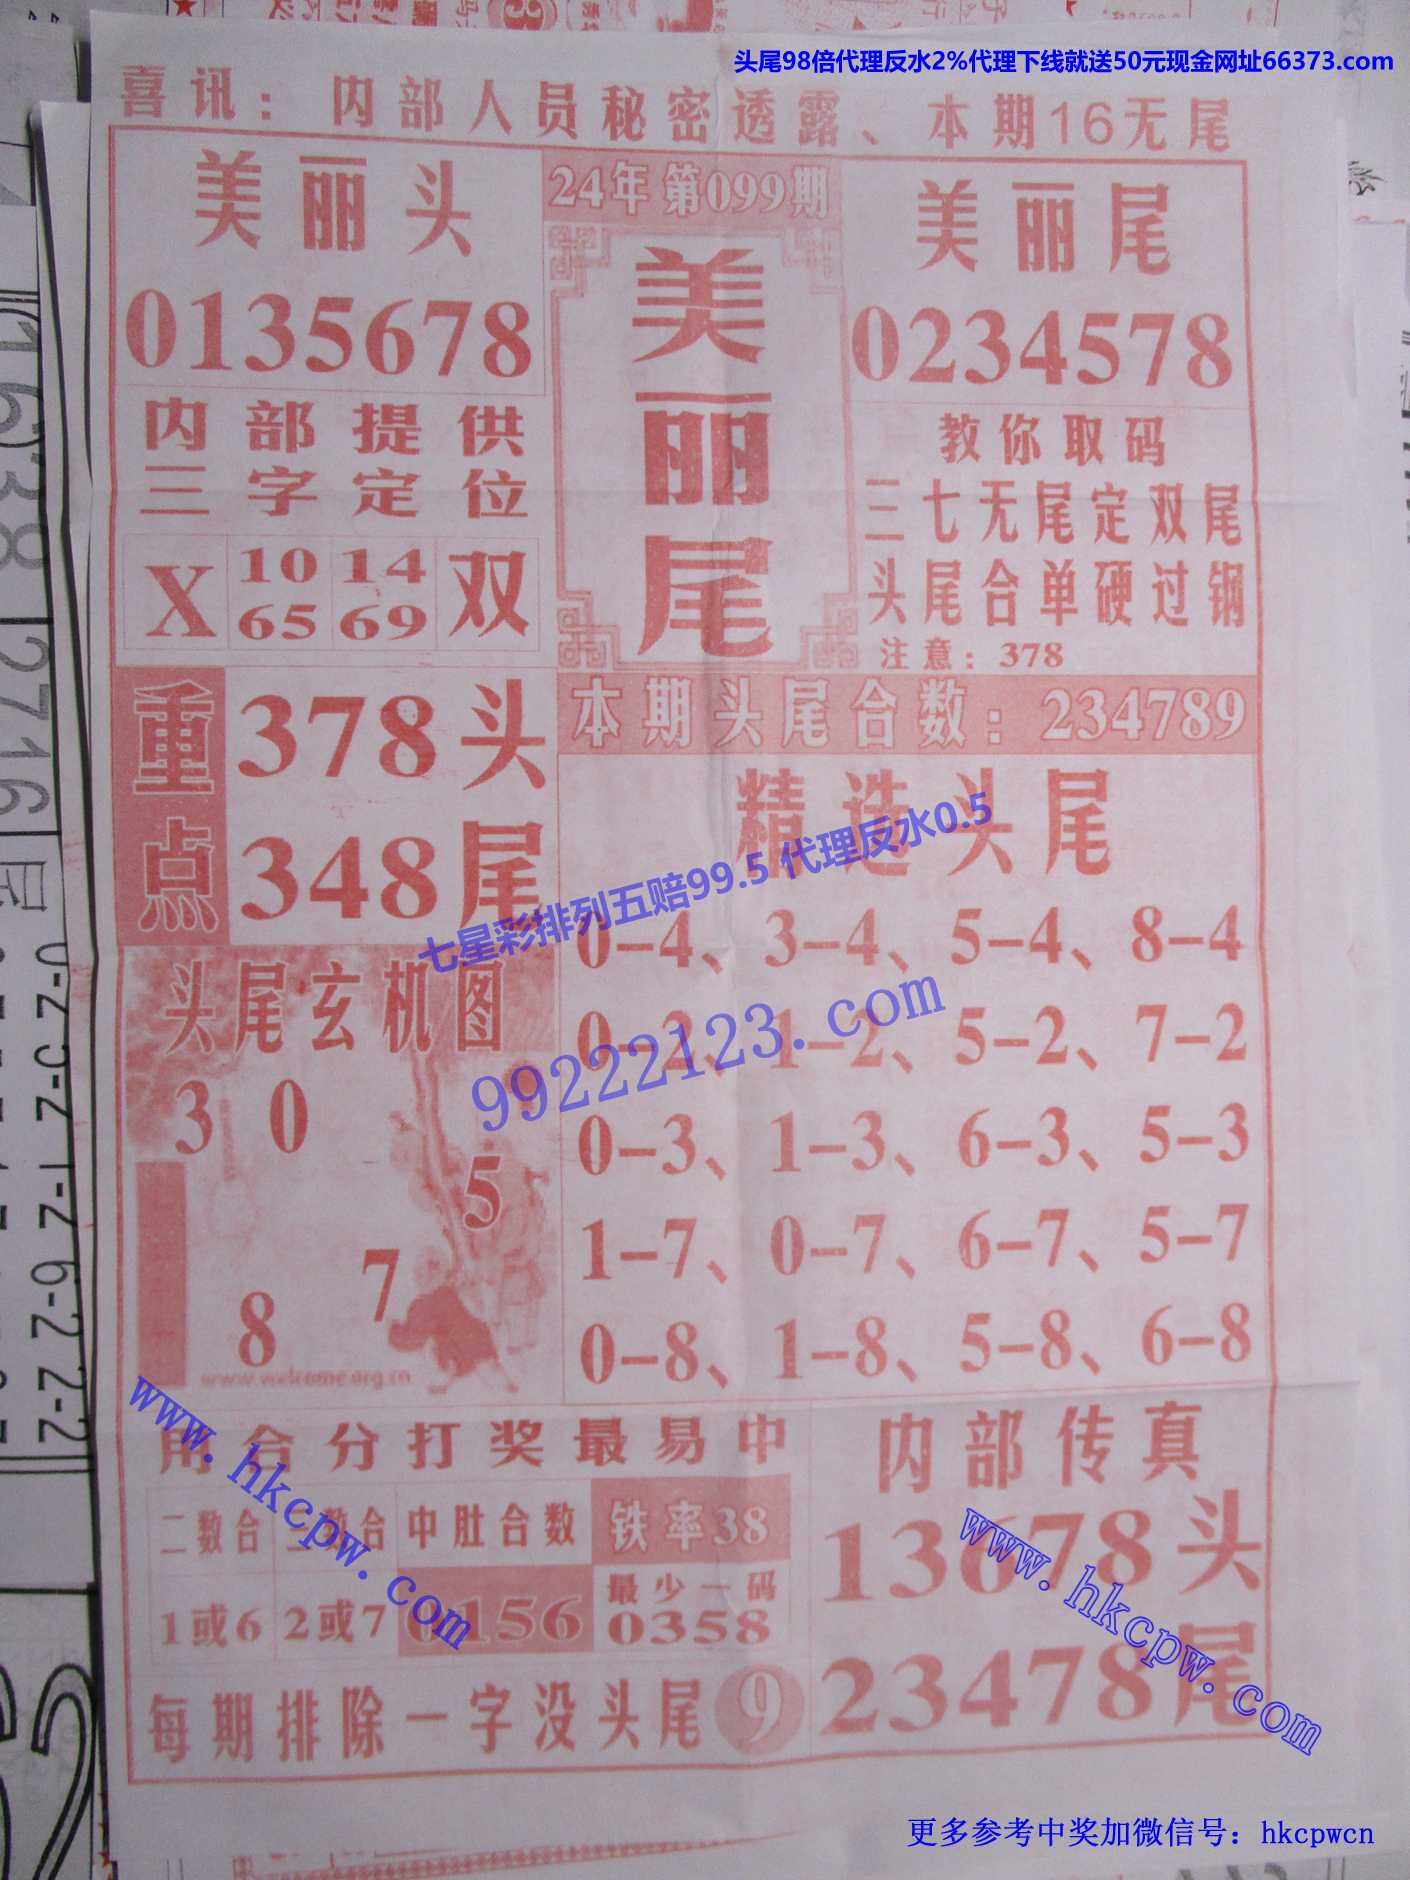 头尾98倍代理反水2%代理下线就送50元现金网址66373.com
喜讯：内部人员秘密透露、本期16无尾
美丽头
0135678
24年第099期
美丽尾
美丽尾
0234578
内部提供
三字定位
X 10 14 双
65 69
教你取码
三七无尾定双尾
头尾合单硬过钢
注意：378
重点
378头
348尾
本期头尾合数：234789
精选头尾
0-4、3-4、5-4、8-4
0-2、1-2、5-2、7-2
0-3、1-3、6-3、5-3
1-7、0-7、6-7、5-7
0-8、1-8、5-8、6-8
七星彩排列五赔99.5 代理反水0.5
99222123.com
头尾玄机图
3 0
5
7
8
www.welcome.org.cn
用合分打奖最易中
二数合 三数合 中肚合数 铁率38
1或6 2或7 0156 最少一码
0358
每期排除一字没头尾 9
内部传真
13678头
23478尾
www.hkcpw.com
www.hkcpw.com
更多参考中奖加微信号：hkcpwcn
1638
2716